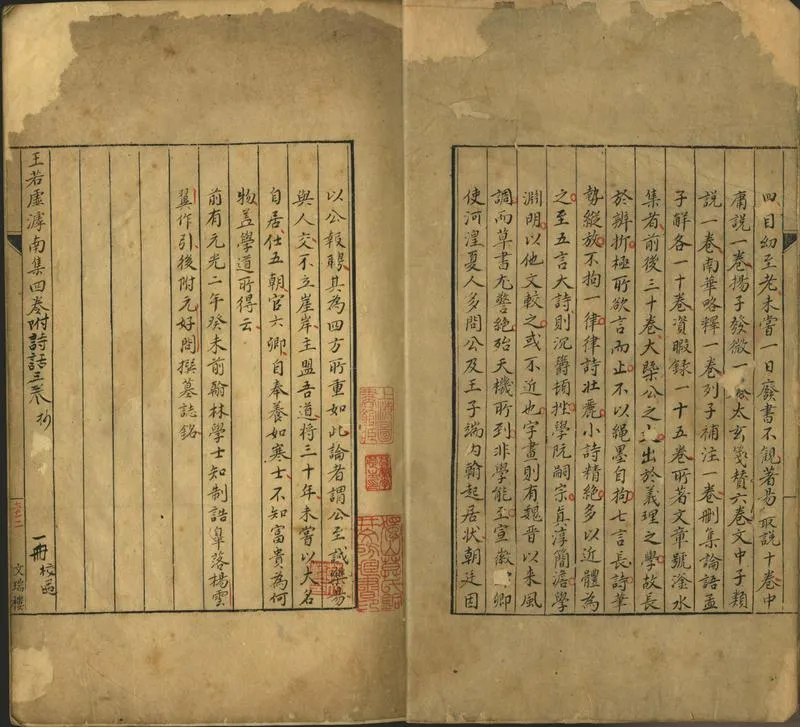 四目幼至老未嘗一日廢書不觀著易 取說十卷中
庸說一卷揚子發微一 太玄箋贊六卷文中子類
說一卷南華略釋一卷列子補注一卷刪集論語孟
子解各一十卷資暇錄一十五卷所著文章號滏水
集者前後三十卷大槩公之 出於義理之學故長
於辨折極所欲言而止不以繩墨自拘七言長詩筆
勢縱放不拘一律律詩壯麗小詩精絕多以近體為
之至五言大詩則沉鬱頓挫學阮嗣宗真淳簡澹學
淵明以他文較之或不近也字畫則有魏晉以來風
調而草書尤警絕殆天機所到非學能至宣徽 卿
使河湟夏人多問公及王子端內翰起居狀朝廷因
以公報聘其為四方所重如此論者謂公至誠樂易
與人交不立崖岸主盟吾道將三十年未嘗以大名
自居仕五朝官六卿自奉養如寒士不知富貴為何
物蓋學道所得云
前有元光二年癸未前翰林學士知制誥皐落楊雲
翼作引後附元好問撰墓誌銘
王若虛滹南集四卷附詩話三卷抄
一冊
文瑞樓